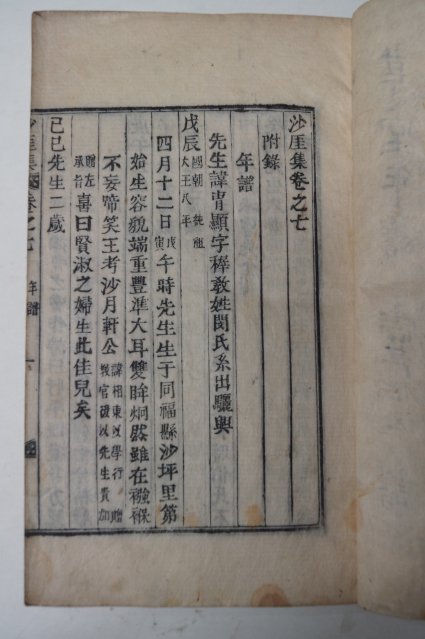 沙厓集卷之七
附錄
年譜
先生諱胄顯字穉敎姓閔氏系出驪興
戊辰 國朝純祖大王八年
四月十二日 戊寅 午時先生生于同福縣沙坪里第
始生容貌端重豐準大耳雙眸炯炯雖在襁褓
不妄啼笑王考沙月軒公 諱相東以學行贈敎官以先生貴加
贈左承旨 喜曰賢淑之婦生此佳兒矣
己巳先生二歲
沙厓集卷之七 年譜 一